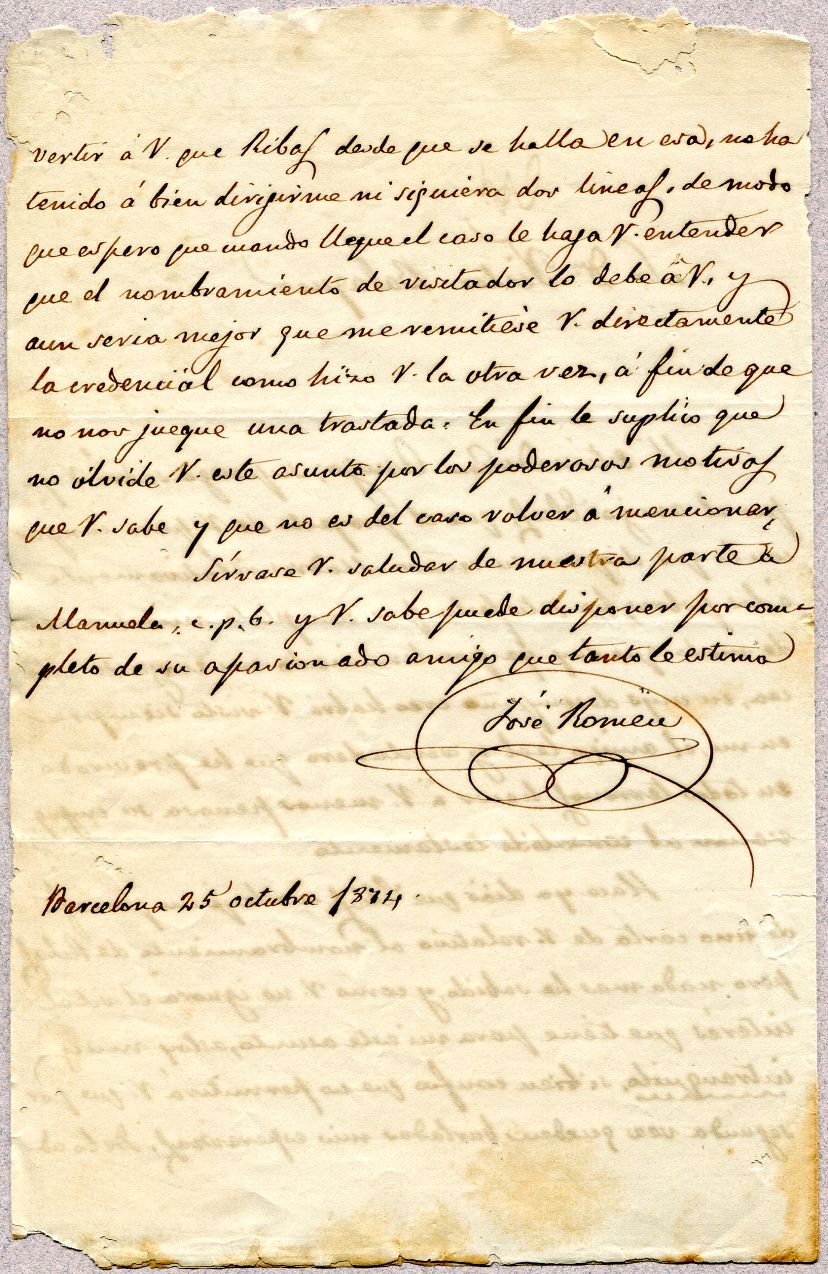 vertir á V. que Ribas desde que se halla en esa, no ha
tenido á bien dirigirme ni siquiera dos lineas, de modo
que espero que cuando llegue el caso le haga V. entender
que el nombramiento de visitador lo debe á V., y
aun seria mejor que me remitiese V. directamente
la credencial como hizo V. la otra vez, á fin de que
no nos juegue una trastada. En fin le suplico que
no olvide V. este asunto por los poderosos motivos
que V. sabe y que no es del caso volver á mencionar.
Sírvase V. saludar de nuestra parte á
Manuela, c.p.b. y V. sabe puede disponer por com-
pleto de su apasionado amigo que tanto le estima
José Romeu
Barcelona 25 octubre 1874.